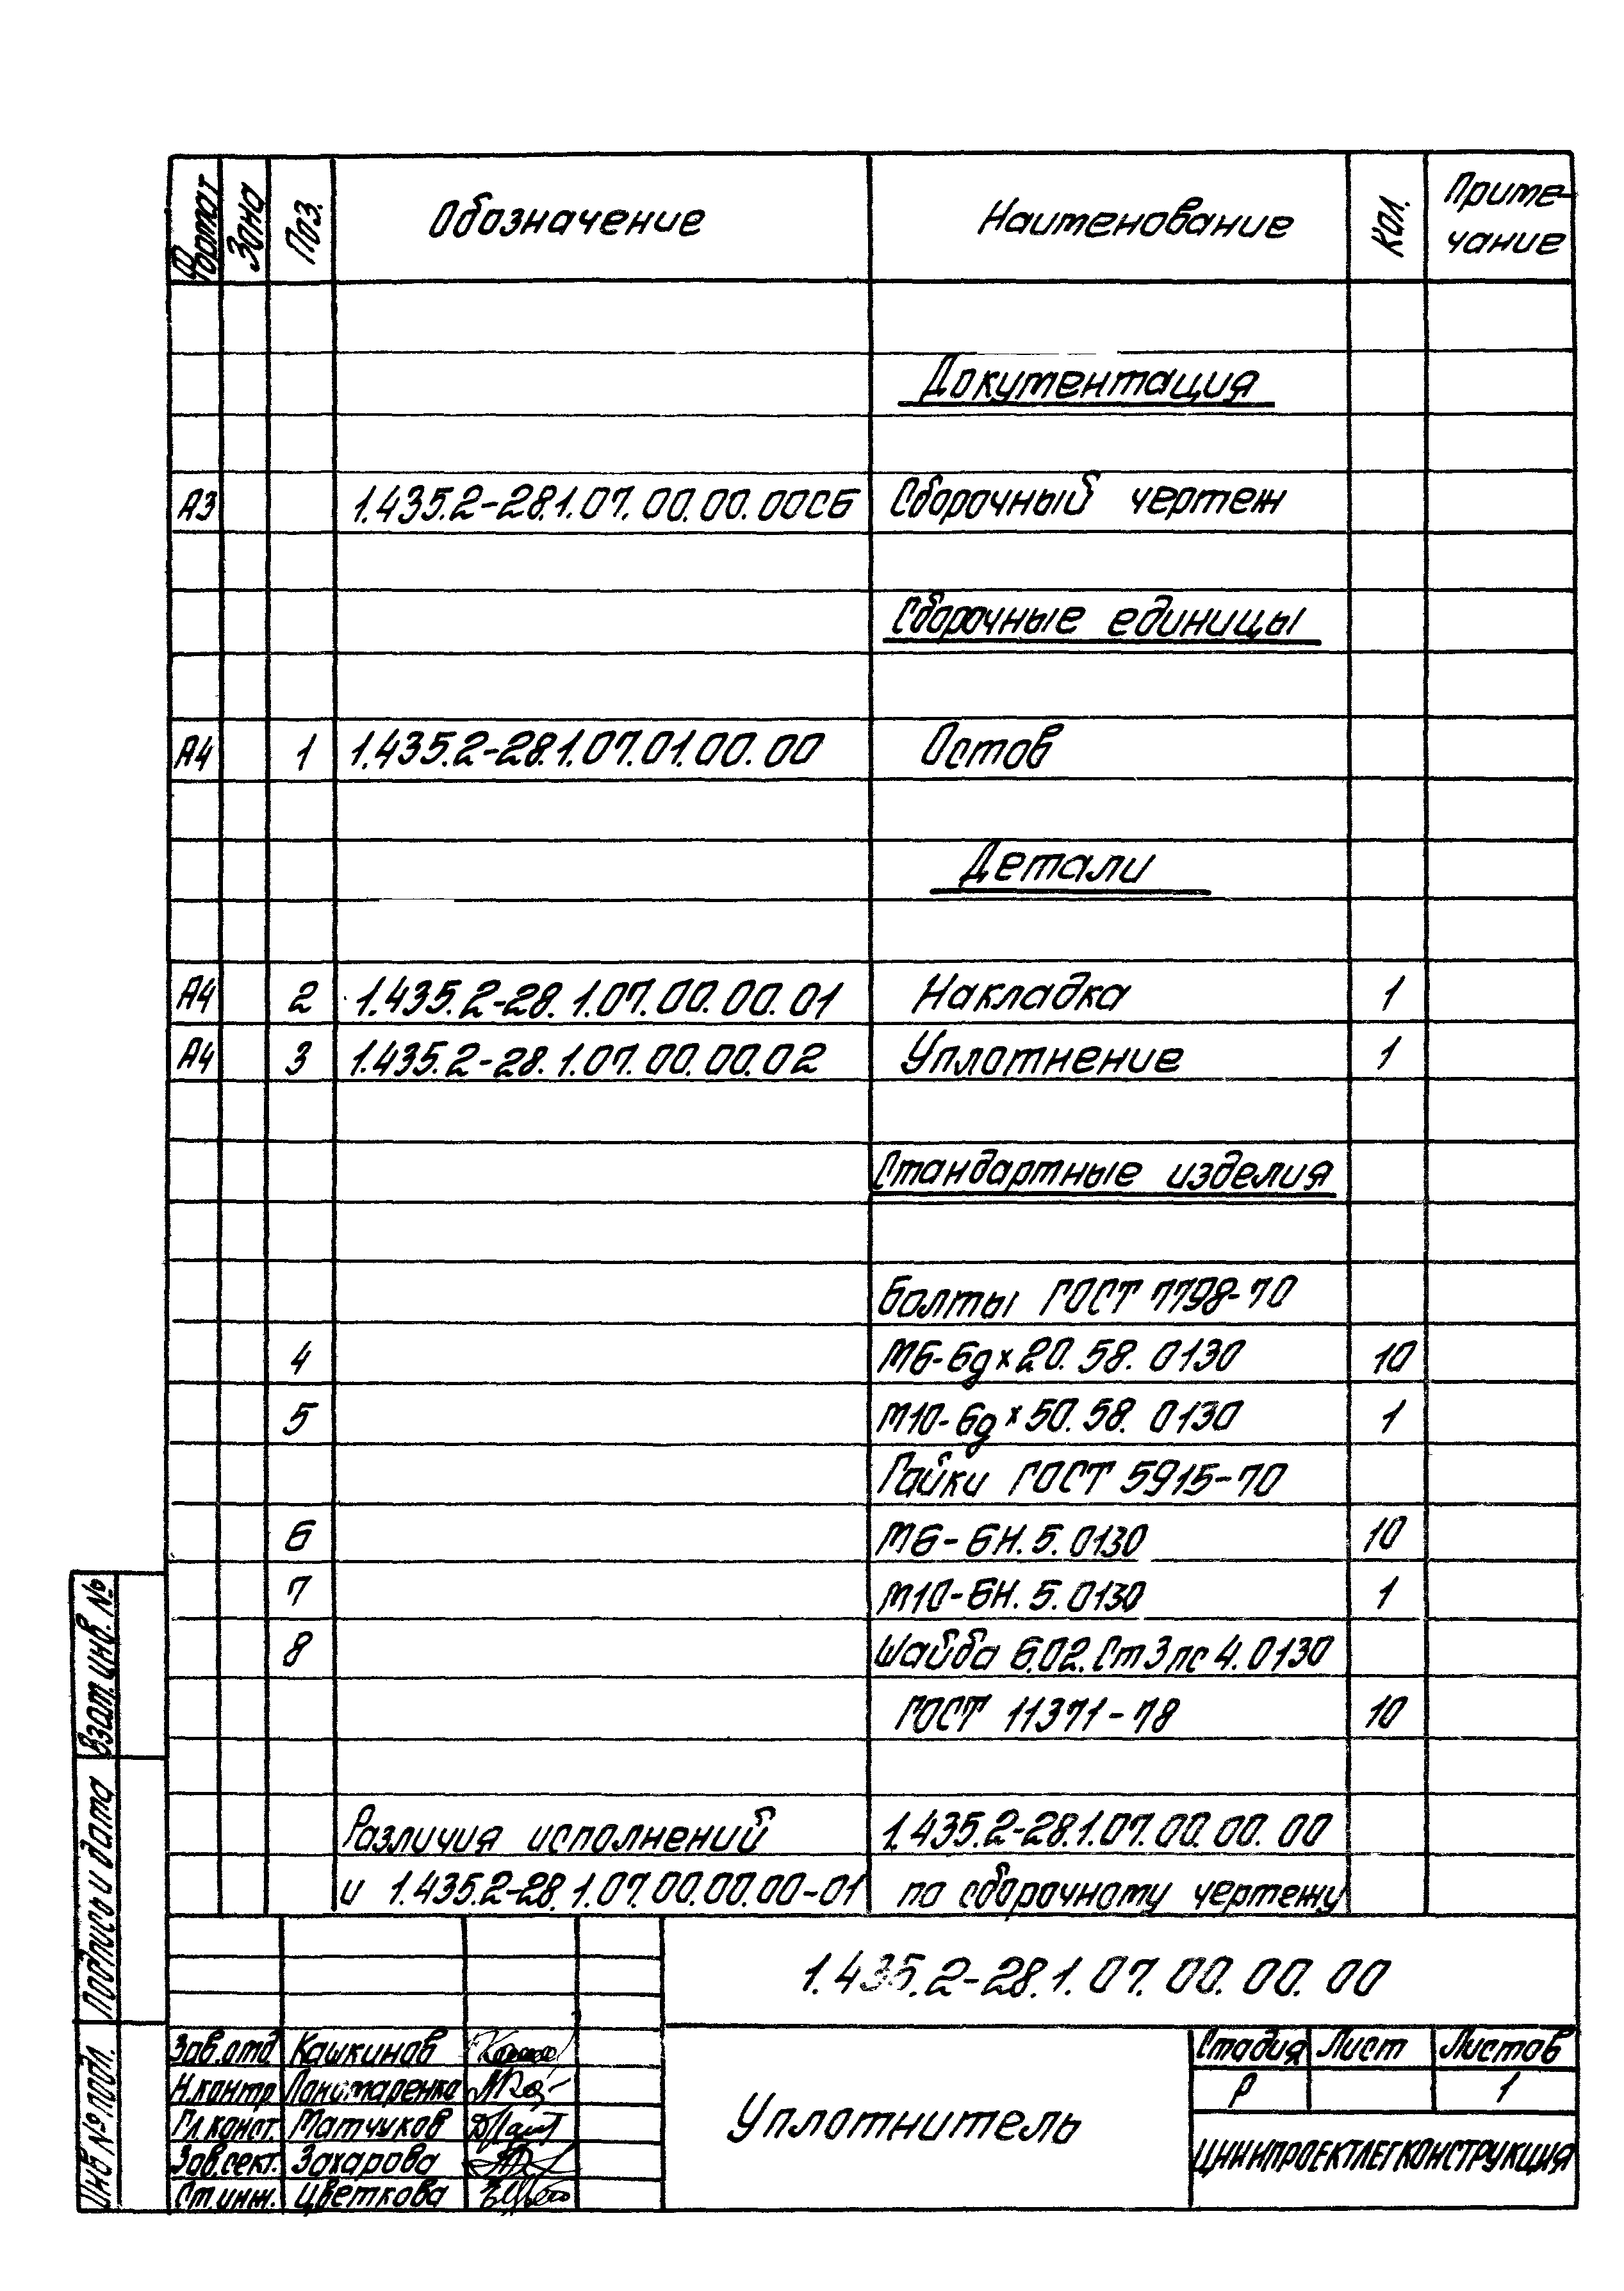 Формат Зона Поз. Обозначение Наименование Кол. Приме-
чание
Документация
А3 1.435.2-28.1.07.00.00.00СБ Сборочный чертеж
Сборочные единицы
А4 1 1.435.2-28.1.07.01.00.00 Остов
Детали
А4 2 1.435.2-28.1.07.00.00.01 Накладка 1
А4 3 1.435.2-28.1.07.00.00.02 Уплотнение 1
Стандартные изделия
Болты ГОСТ 7798-70
4 М6-6g×20.58.0130 10
5 М10-6g×50.58.0130 1
Гайки ГОСТ 5915-70
6 М6-6Н.5.0130 10
7 М10-6Н.5.0130 1
8 Шайба 6.02.Ст3пс4.0130
ГОСТ 11371-78 10
Различия исполнений 1.435.2-28.1.07.00.00.00
и 1.435.2-28.1.07.00.00.00-01 по сборочному чертежу
Взам. инв. №
Подпись и дата
Инв № подл.
1.435.2-28.1.07.00.00.00
Зав.отд Кашкинов
Н.контр Пономаренко
Гл.конст. Матчуков
Зав.сект. Захарова
Ст.инж. Цветкова
Уплотнитель
Стадия Лист Листов
Р 1
ЦНИИПРОЕКТЛЕГКОНСТРУКЦИЯ